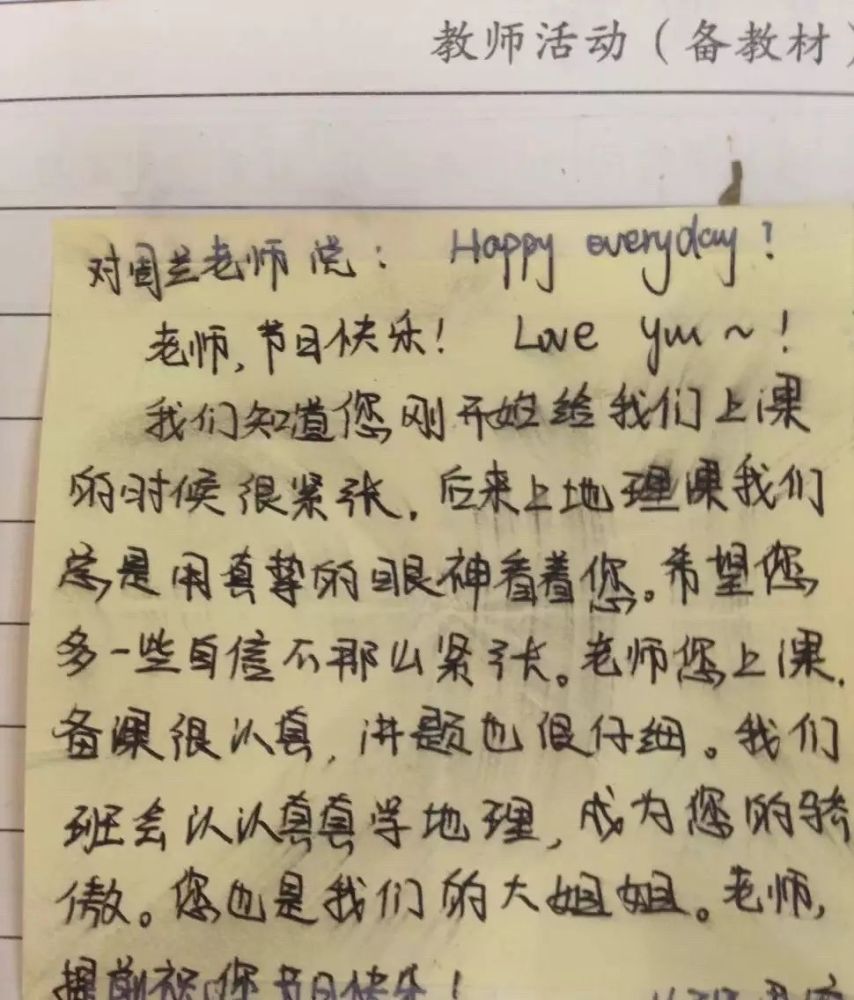 教师活动（备教材）
对周兰老师说： Happy everyday！
老师，节日快乐！ Love you ~！
我们知道您刚开始给我们上课
的时候很紧张，后来上地理课我们
总是用真挚的眼神看着您。希望您
多一些自信不那么紧张。老师您上课，
备课很认真，讲题也很仔细。我们
班会认认真真学地理，成为您的骄
傲。您也是我们的大姐姐。老师，
提前祝您节日快乐！